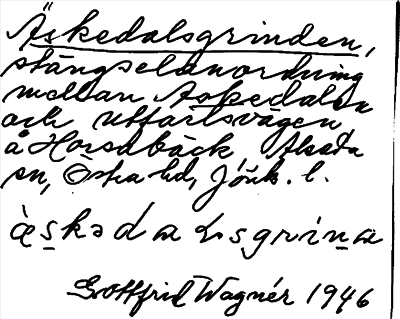 Äskedalsgrinden,
stängselanordning
mellan Äskedalen
och utfartsvägen
å Horsabäck, Alseda
sn, Östra hd, Jönk. l.
Gottfrid Wagnér 1946